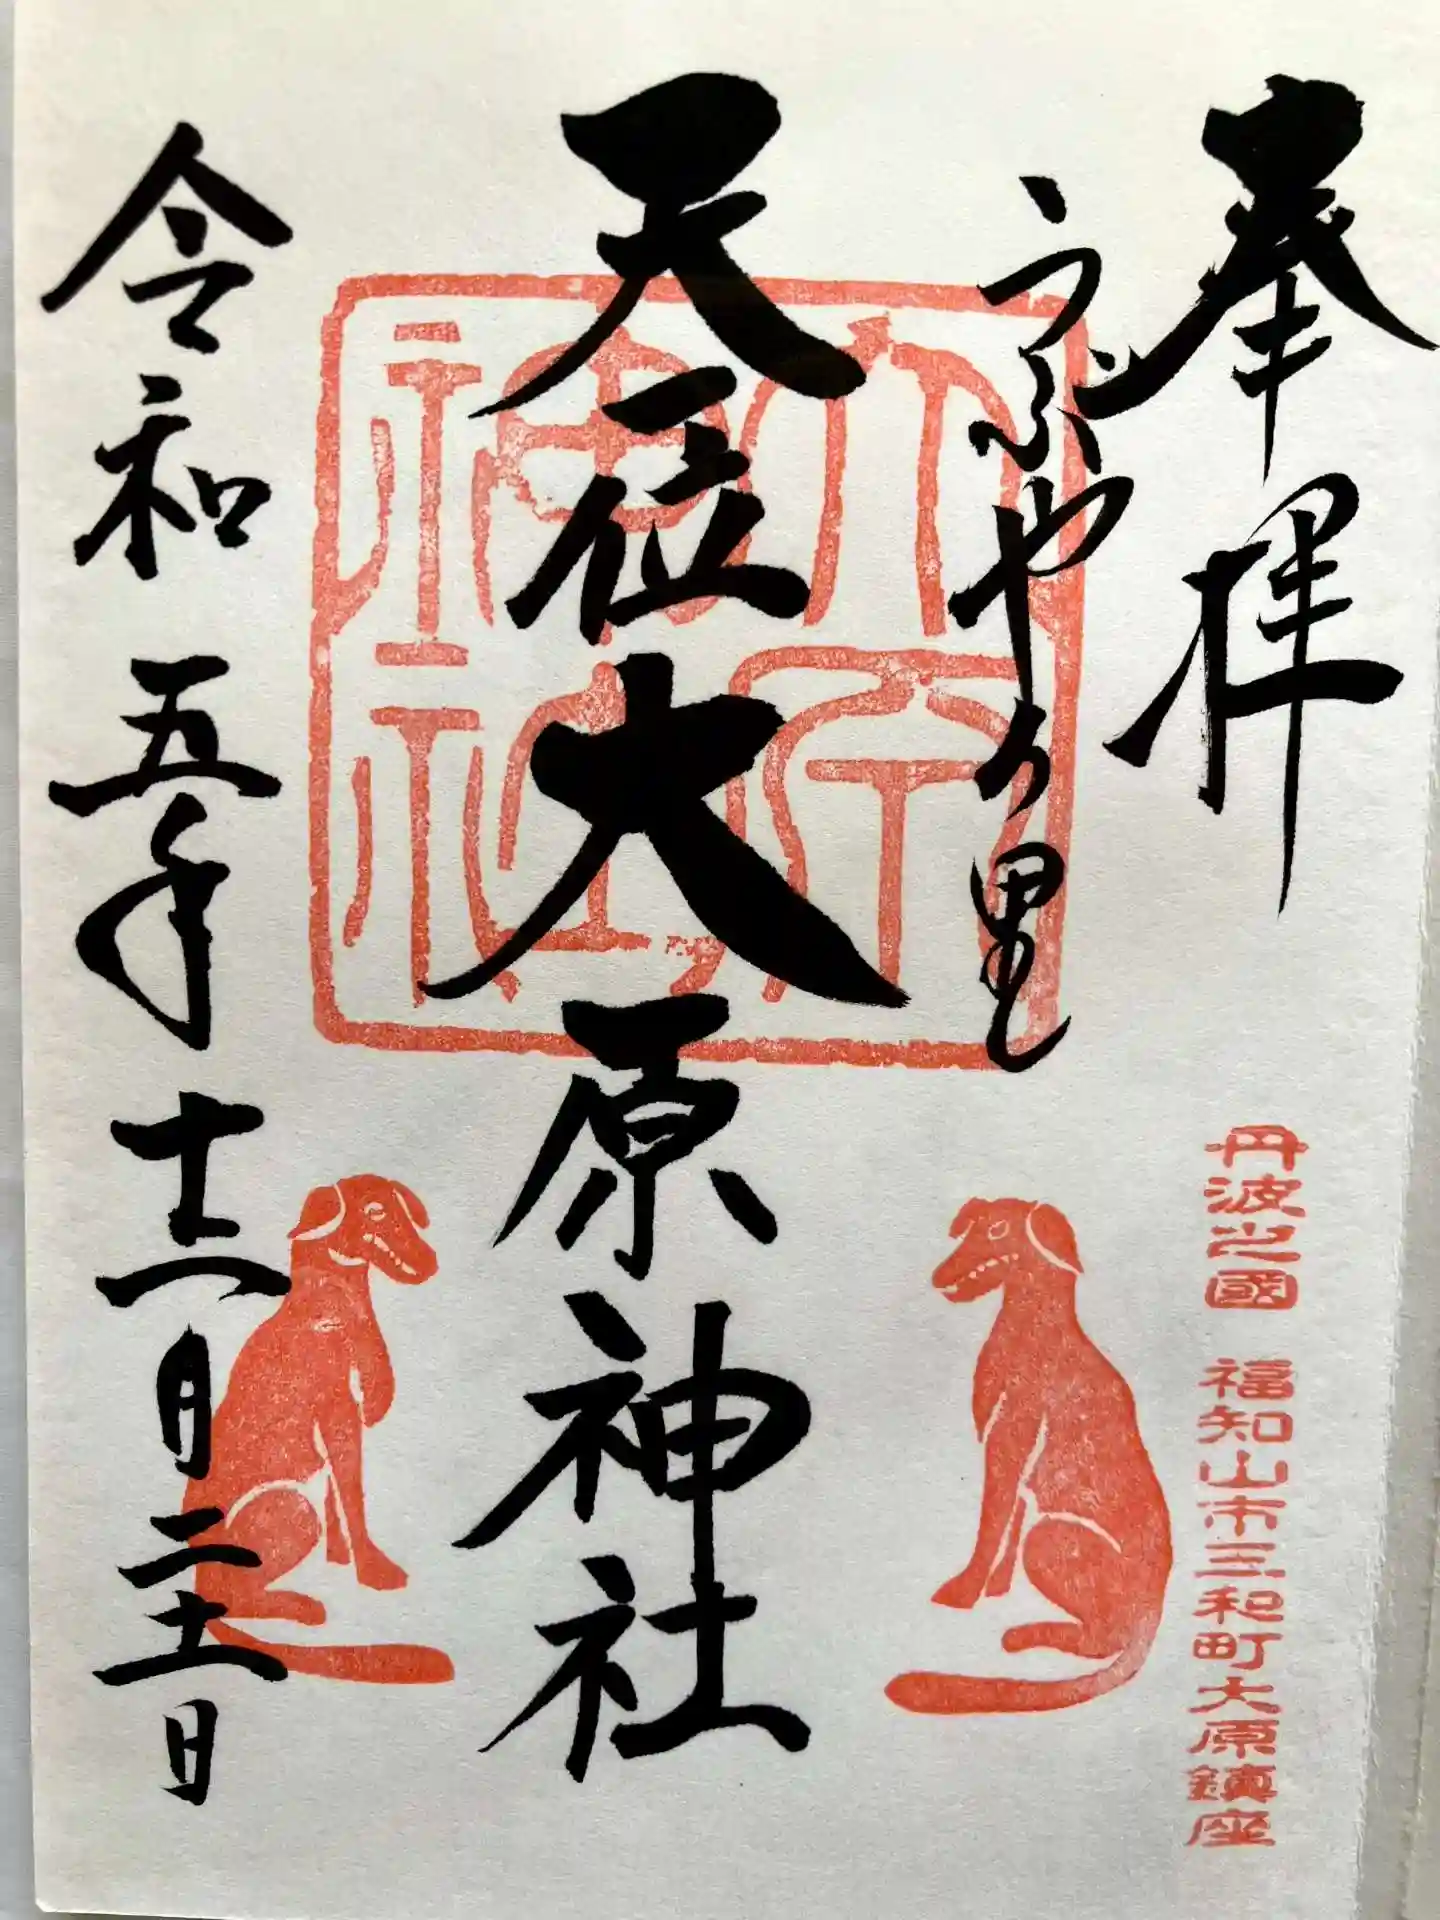 奉拝
うぶやの里
丹波之國 福知山市三和町大原鎮座
天一位大原神社
令和五年十二月二十一日